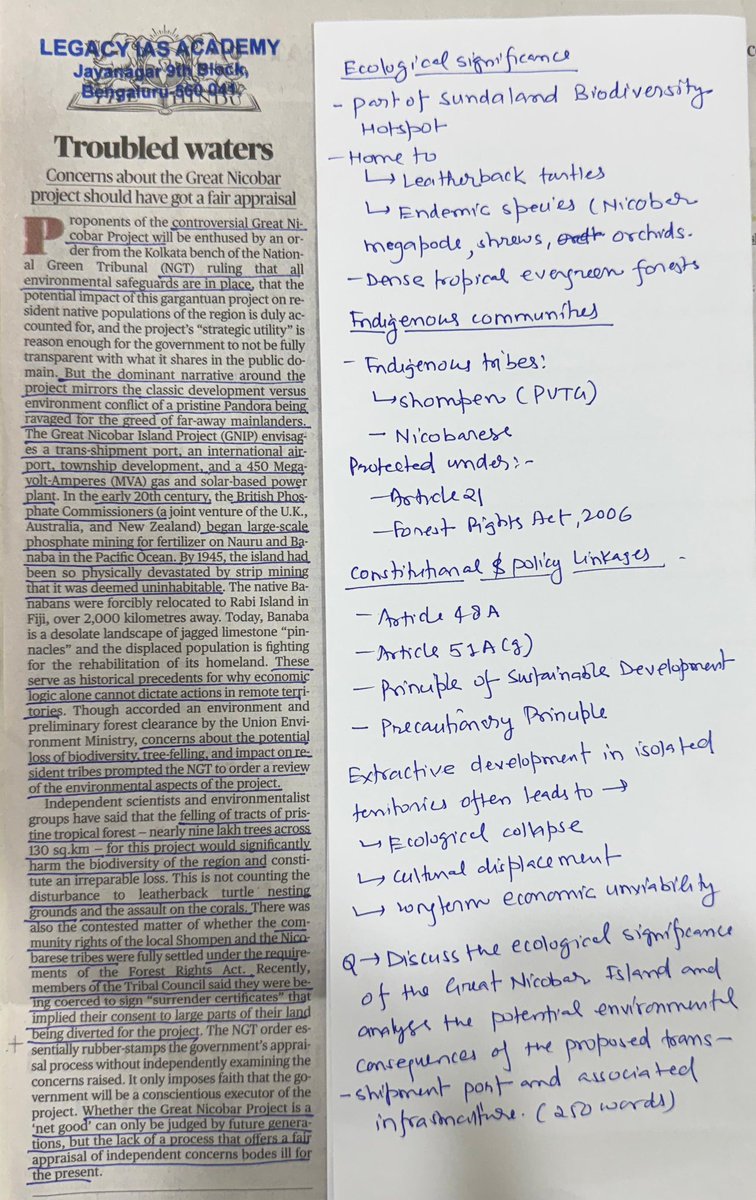 LEGACY IAS ACADEMY
Jayanagar 9th Block,
Bengaluru-560 041.
Troubled waters
Concerns about the Great Nicobar
project should have got a fair appraisal
Proponents of the controversial Great Ni-
cobar Project will be enthused by an or-
der from the Kolkata bench of the Nation-
al Green Tribunal (NGT) ruling that all
environmental safeguards are in place, that the
potential impact of this gargantuan project on re-
sident native populations of the region is duly ac-
counted for, and the project's "strategic utility" is
reason enough for the government to not be fully
transparent with what it shares in the public do-
main. But the dominant narrative around the
project mirrors the classic development versus
environment conflict of a pristine Pandora being
ravaged for the greed of far-away mainlanders.
The Great Nicobar Island Project (GNIP) envisag-
es a trans-shipment port, an international air-
port, township development, and a 450 Mega-
volt-Amperes (MVA) gas and solar-based power
plant. In the early 20th century, the British Phos-
phate Commissioners (a joint venture of the U.K.,
Australia, and New Zealand) began large-scale
phosphate mining for fertilizer on Nauru and Ba-
naba in the Pacific Ocean. By 1945, the island had
been so physically devastated by strip mining
that it was deemed uninhabitable. The native Ba-
nabans were forcibly relocated to Rabi Island in
Fiji, over 2,000 kilometres away. Today, Banaba
is a desolate landscape of jagged limestone "pin-
nacles" and the displaced population is fighting
for the rehabilitation of its homeland. These
serve as historical precedents for why economic
logic alone cannot dictate actions in remote terri-
tories. Though accorded an environment and
preliminary forest clearance by the Union Envi-
ronment Ministry, concerns about the potential
loss of biodiversity, tree-felling, and impact on re-
sident tribes prompted the NGT to order a review
of the environmental aspects of the project.
Independent scientists and environmentalist
groups have said that the felling of tracts of pris-
tine tropical forest – nearly nine lakh trees across
130 sq.km – for this project would significantly
harm the biodiversity of the region and consti-
tute an irreparable loss. This is not counting the
disturbance to leatherback turtle nesting
grounds and the assault on the corals. There was
also the contested matter of whether the com-
munity rights of the local Shompen and the Nico-
barese tribes were fully settled under the require-
ments of the Forest Rights Act. Recently,
members of the Tribal Council said they were be-
ing coerced to sign "surrender certificates" that
implied their consent to large parts of their land
being diverted for the project. The NGT order es-
sentially rubber-stamps the government's apprai-
sal process without independently examining the
concerns raised. It only imposes faith that the go-
vernment will be a conscientious executor of the
project. Whether the Great Nicobar Project is a
'net good' can only be judged by future genera-
tions, but the lack of a process that offers a fair
appraisal of independent concerns bodes ill for
the present.
Ecological significance
- part of Sundaland Biodiversity
Hotspot
- Home to
↳ Leatherback turtles
↳ Endemic species (Nicobar
megapode, shrews, orchids.
- Dense tropical evergreen forests
Indigenous communities
- Indigenous tribes:
↳ shompen (PVTG)
- Nicobarese
Protected under:-
- Article 21
- Forest Rights Act, 2006
Constitutional & policy Linkages -
- Article 48A
- Article 51A(g)
- Principle of Sustainable Development
- Precautionary Principle
Extractive development in isolated
territories often leads to →
↳ Ecological collapse
↳ cultural displacement
↳ longterm economic unviability
Q → Discuss the ecological significance
of the Great Nicobar Island and
analyse the potential environmental
consequences of the proposed trans-
-shipment port and associated
infrastructure. (250 words)